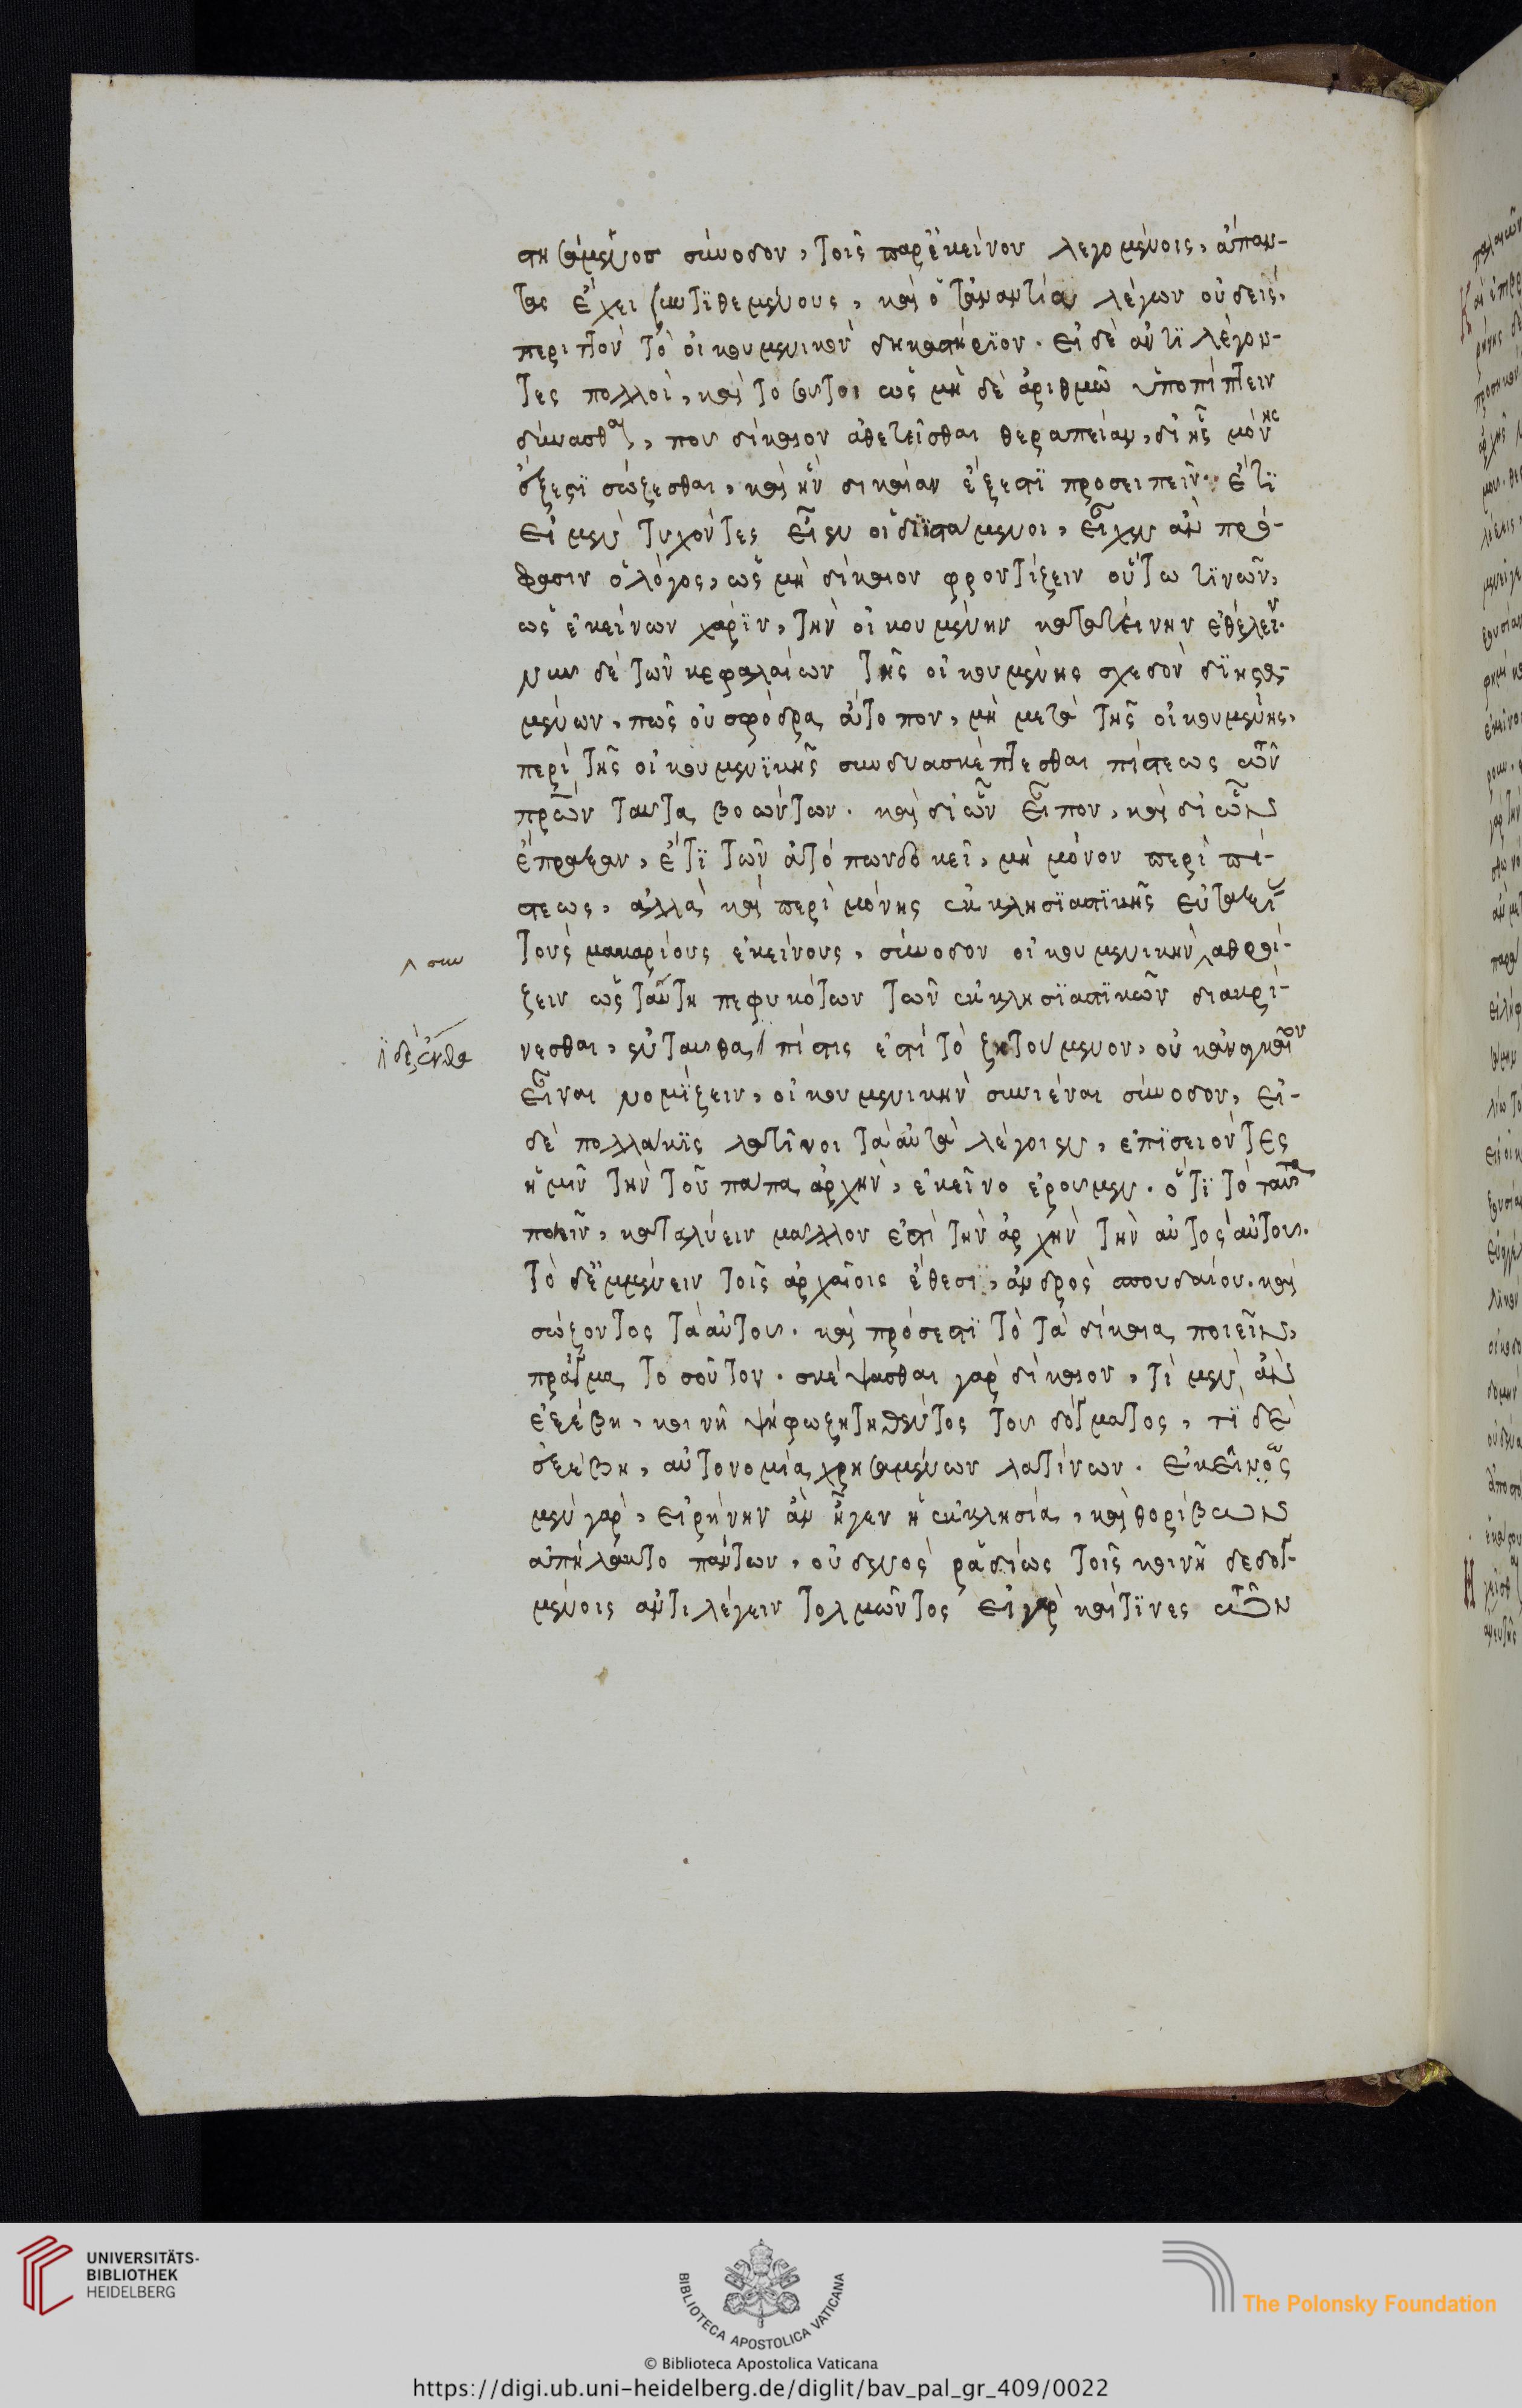 στησάμενοσ σύνοδον, τοῖς παρ' ἐκείνου λεγομένοις, ἅπαν-
τας ἔχει συντιθεμένους, καὶ ὁ τἀναντία λέγων οὐδείς,
περιττὸν τὸ οἰκουμενικὸν δικαστήριον. εἰ δὲ ἀντιλέγον-
τες πολλοὶ, καὶ τοσοῦτοι ὡς μὴ δὲ ἀριθμῶ ὑποπίπτειν
δύνασθαι, που δίκαιον ἀθετεῖσθαι θεραπείαν, δι' ἧς μόνης
ἔξεστι σώζεσθαι, καὶ ἣν δικαίαν ἔξεστι προσειπεῖν. ἔτι
εἰ μὲν τυχόντες εἶεν οἱ διϊστάμενοι, εἶχεν ἂν πρό-
φασιν ὁ λόγος, ὡς μὴ δίκαιον φροντίζειν οὕτω τινῶν,
ὡς ἐκείνων χάριν, τὴν οἰκουμένην κατατείνειν ἐθέλειν.
νυν δὲ τῶν κεφαλαίων τῆς οἰκουμένης σχεδὸν διϊστα-
μένων, πῶς οὐ σφόδρα ἄτοπον, μὴ μετὰ τῆς οἰκουμένης,
περὶ τῆς οἰκουμενικῆς συνδιασκέπτεσθαι πίστεως τῶν
πρῶν ταῦτα βοώντων. καὶ δι' ὧν εἶπον, καὶ δι' ὧν
ἔπραξαν, ἔτι τῶν ἀτόπων δοκεῖ, μὴ μόνον περὶ πί-
στεως, ἀλλὰ καὶ περὶ μόνης ἐκκλησιαστικῆς εὐταξίας
τοὺς μακαρίους ἐκείνους, σύνοδον οἰκουμενικὴν ἀθροί-
^ συν
ζειν ὡς ταύτη πεφυκότων τῶν ἐκκλησιαστικῶν διακρί-
νεσθαι, ἐνταυθα πίστις ἐστὶ τὸ ζητούμενον, οὐκ ἀναγκαῖον
ἰδὲ ἔνθα
εἶναι νομίζειν, οἰκουμενικὴν συνιέναι σύνοδον, εἰ-
δὲ πολλάκις λατῖνοι τὰ αὐτὰ λέγοιεν, ἐπισείοντες
ἡμῖν τὴν τοῦ πάπα ἀρχὴν, ἐκεῖνο ἐροῦμεν. ὅτι τὸ ταῦτα
ποιεῖν, καταλύειν μᾶλλον ἐστὶ τὴν ἀρχὴν τὴν αὐτὸς αὑτοῦ.
τὸ δ' ἐμμένειν τοῖς ἀρχαῖοις ἔθεσι, ἀνδρὸς σπουδαίου. καὶ
σώζοντος τὰ αὑτοῦ. καὶ πρόσεστι τὸ τὰ δίκαια ποιεῖν,
πρᾶγμα τοσοῦτον. σκέψασθαι γὰρ δίκαιον, τί μὲν ἂν
ἐξέβη, κοινῆ ψήφω ζητηθέντος τοῦ δόγματος, τί δὲ
ἐξέβη, αὐτονομία χρησαμένων λατίνων. ἐκείνως
μὲν γὰρ, εἰρήνην ἂν ἦγεν ἡ ἐκκλησία, καὶ θορύβων
ἀπήλακτο πάντων, οὐδενὸς ῥαδίως τοῖς κοινῆ δεδογ-
μένοις ἀντιλέγειν τολμῶντος εἰ γὰρ καὶ τινες τῶν
UNIVERSITÄTS-
BIBLIOTHEK
HEIDELBERG
BIBLIOTECA APOSTOLICA VATICANA
The Polonsky Foundation
© Biblioteca Apostolica Vaticana
https://digi.ub.uni-heidelberg.de/diglit/bav_pal_gr_409/0022